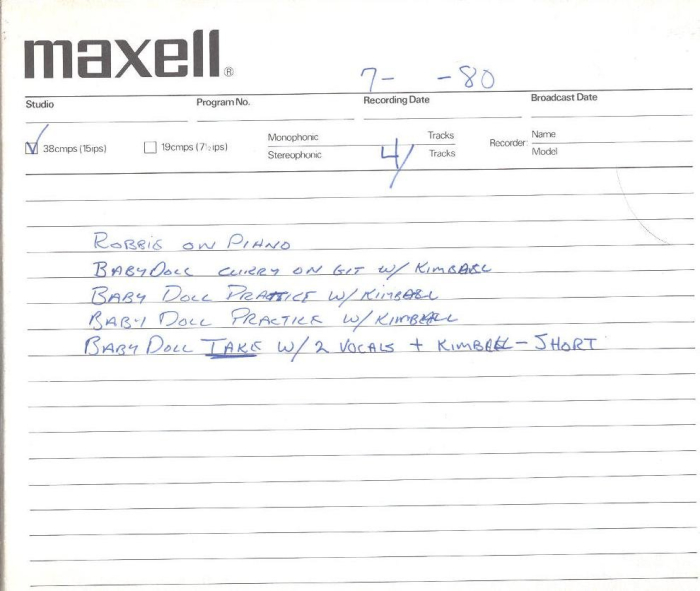 maxell®
7-   -80
Studio Program No. Recording Date Broadcast Date
38cmps (15ips) 19cmps (7½ips) Monophonic Tracks Recorder Name
Stereophonic 4 Tracks Model
ROBBIE ON PIANO
BABY DOLL CURRY ON GIT W/ KIMBALL
BABY DOLL PRACTICE W/ KIMBALL
BABY DOLL PRACTICE W/ KIMBALL
BABY DOLL TAKE W/ 2 VOCALS + KIMBALL - SHORT